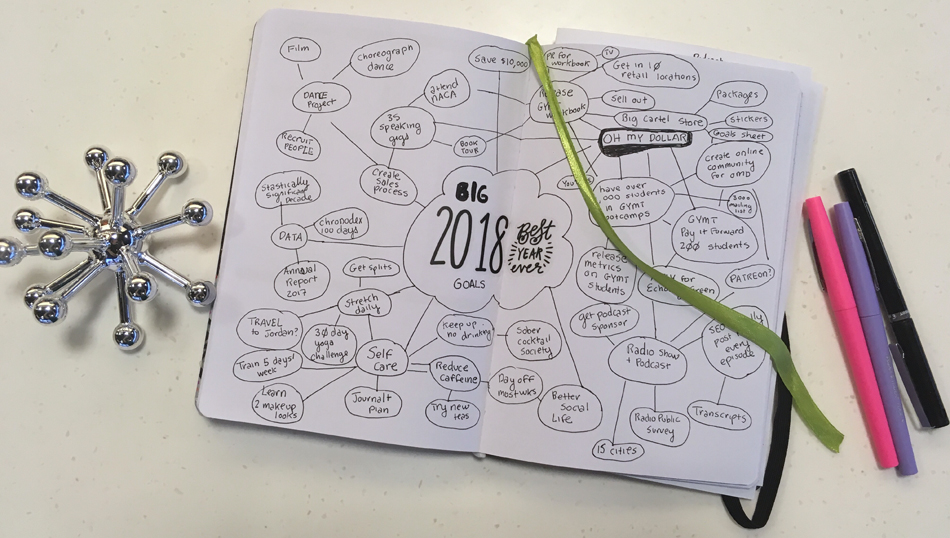 Film
Choreograph
dance
DANCE
Project
RECRUIT
PEOPLE
attend
NACA
35
speaking
gigs
BOOK
TOUR
Create
Sales
process
Save $10,000
Stastically
significant
decade
chronodex
100 days
DATA
Annual
Report
2017
Get splits
Stretch
daily
TRAVEL
to Jordan?
30 day
yoga
challenge
Train 5 days/
week
Self
Care
Learn
2 makeup
looks
Journal +
Plan
Keep up
no drinking
Reduce
caffeine
Try new
teas
BIG
2018
GOALS
Best
YEAR
ever
Sober
cocktail
Society
Day off
most wks
Better
Social
Life
PR for
workbook
TV
Get in 10
retail locations
workbook
Sell out
Big Cartel Store
Packages
Stickers
Goals sheet
OH MY DOLLAR
Create online
community
for OMD
3000
mailing
list
have over
students
in GYMT
GYMT
Pay it Forward
200 students
release
metrics
on GYMT
students
for
PATREON?
get podcast
Sponsor
Radio Show
+ Podcast
SEO
post
every
episode
Transcripts
Radio Public
Survey
15 cities